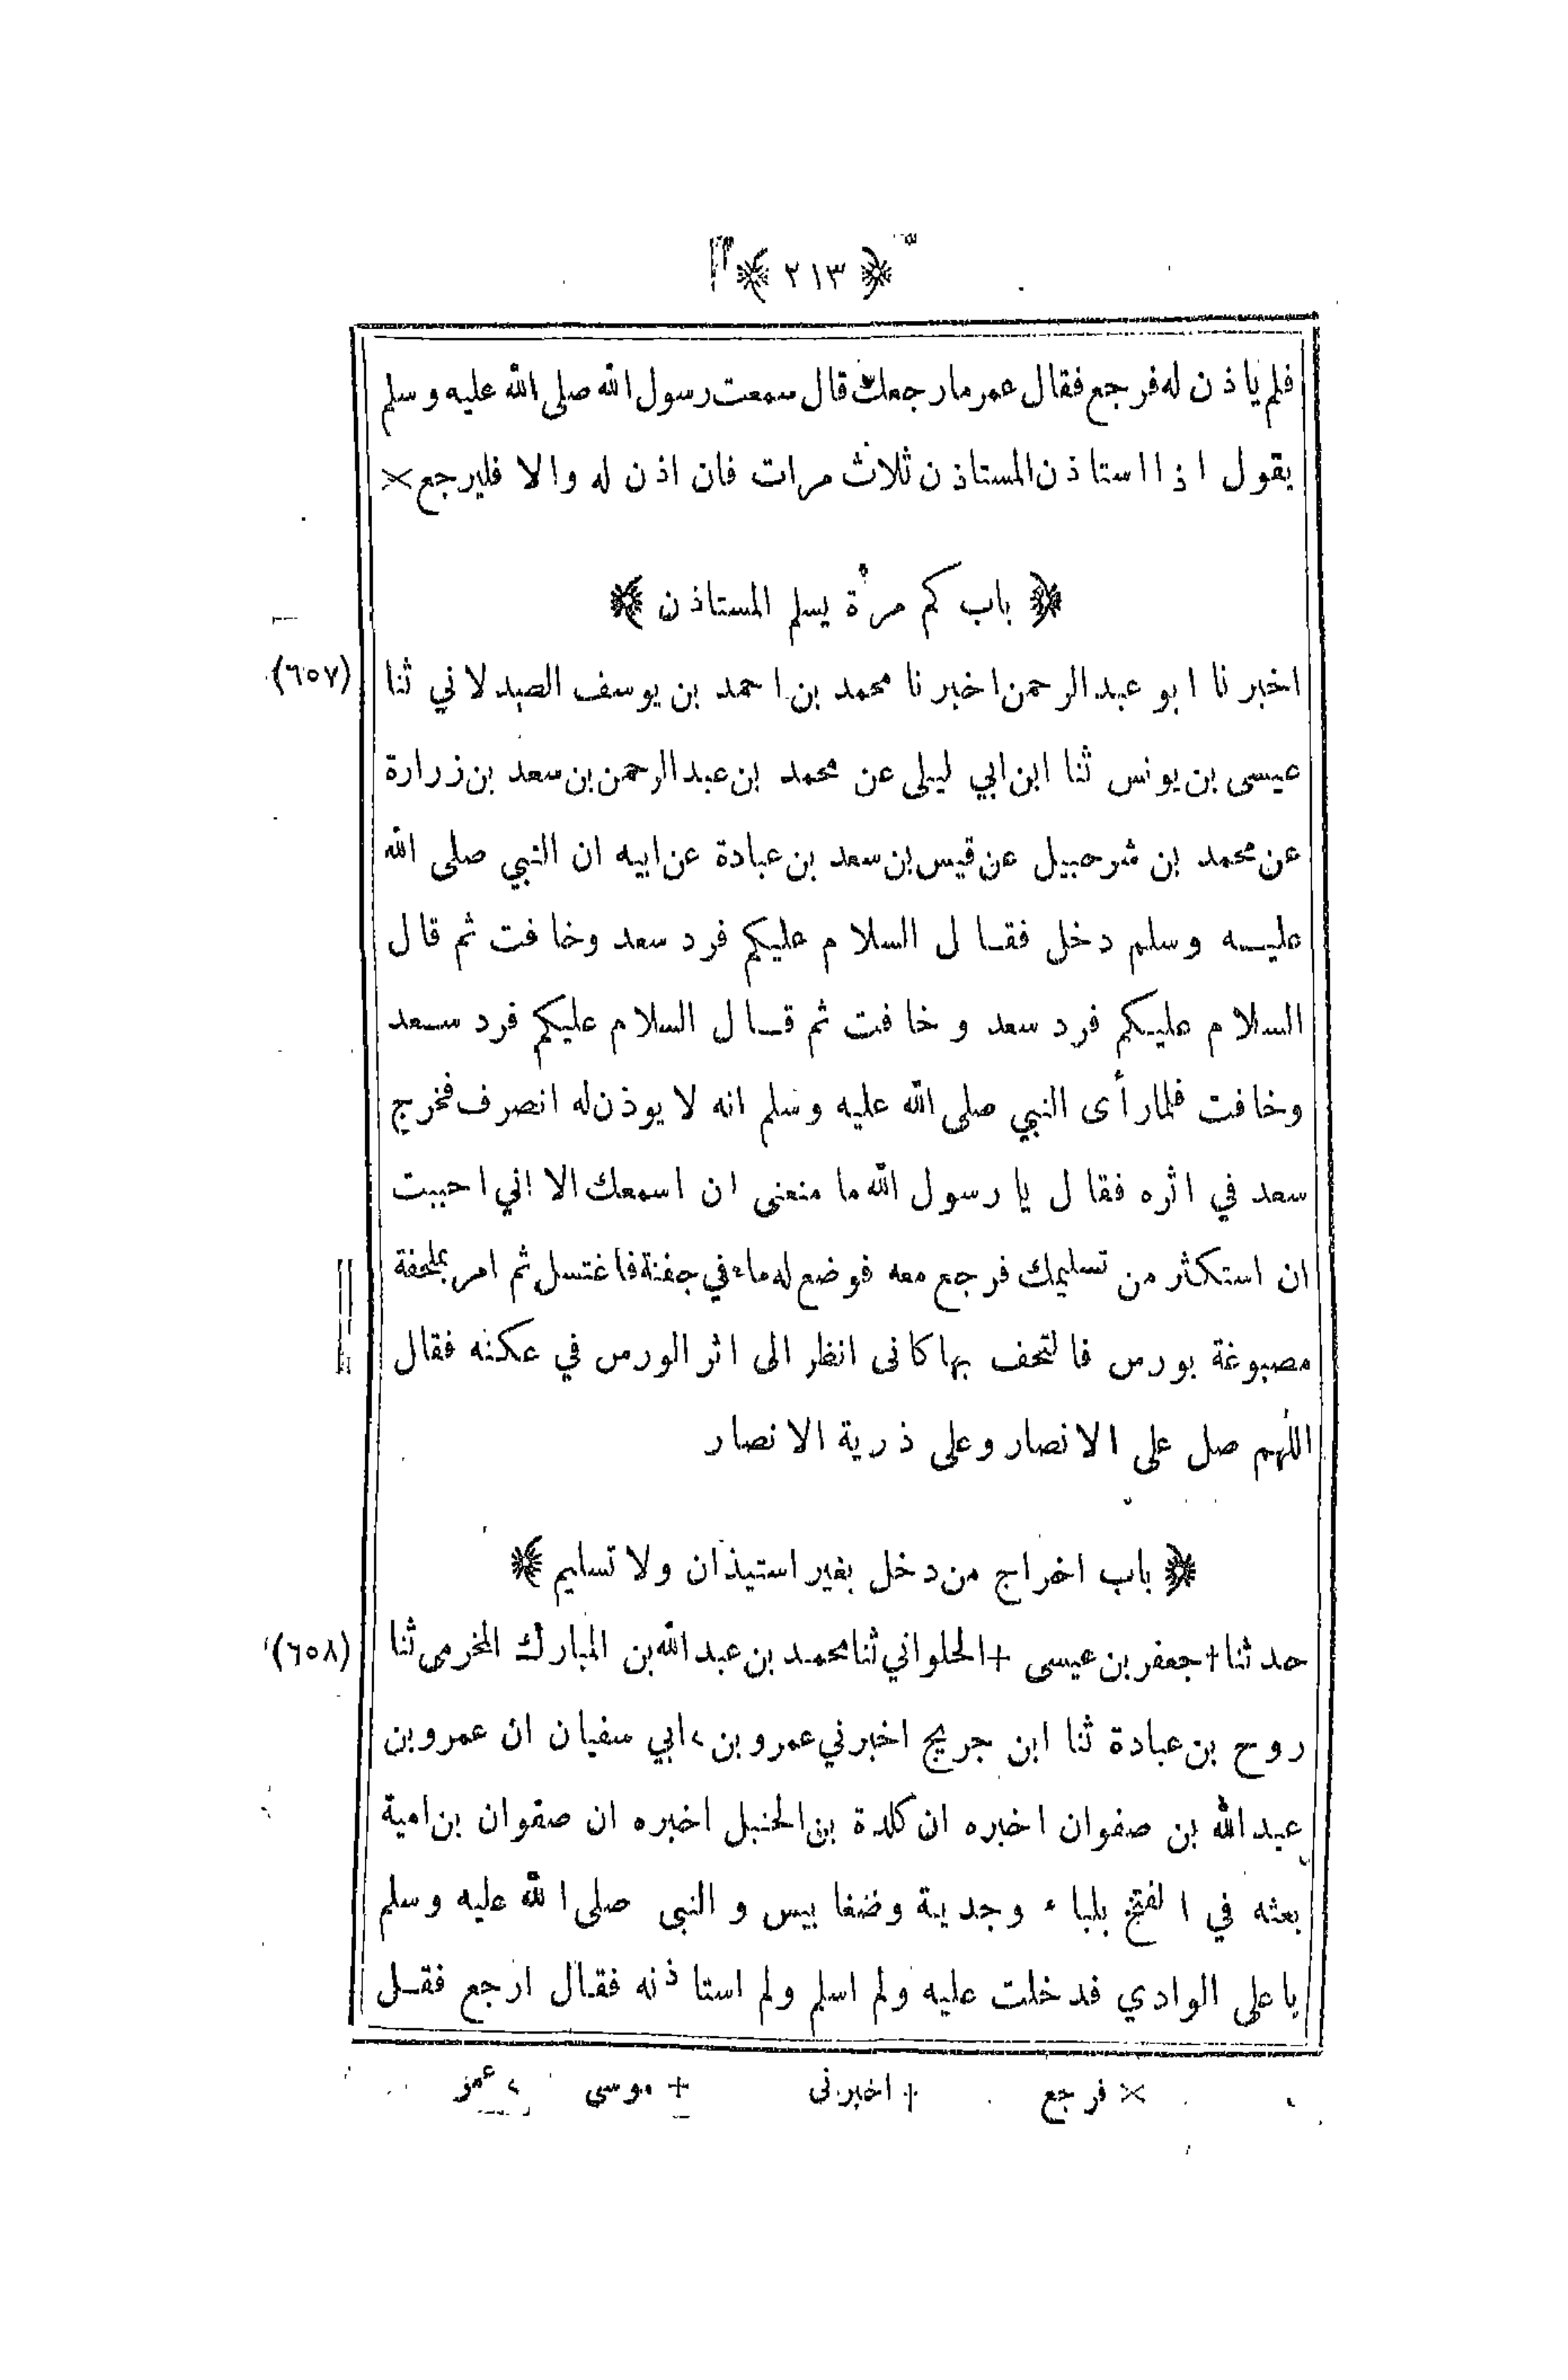 ﴿ ٢١٣ ﴾
فلم ياذن له فرجع فقال عمر ما رجعك قال سمعت رسول الله صلى الله عليه وسلم
يقول اذا استاذن المستاذن ثلاث مرات فان اذن له والا فليرجع ×
﴿ باب كم مرة يسلم المستاذن ﴾
(٦٥٧) اخبرنا ابو عبد الرحمن اخبرنا محمد بن احمد بن يوسف الصيدلاني ثنا
عيسى بن يونس ثنا ابن ابي ليلى عن محمد بن عبد الرحمن بن سعد بن زرارة
عن محمد بن شرحبيل عن قيس بن سعد بن عبادة عن ابيه ان النبي صلى الله
عليه وسلم دخل فقال السلام عليكم فرد سعد وخافت ثم قال
السلام عليكم فرد سعد وخافت ثم قال السلام عليكم فرد سعد
وخافت فلما رأى النبي صلى الله عليه وسلم انه لا يوذن له انصرف فخرج
سعد في اثره فقال يا رسول الله ما منعنى ان اسمعك الا اني احببت
ان استكثر من تسليمك فرجع معه فوضع له ماء في جفنة فاغتسل ثم امر بملحفة
مصبوغة بورس فالتحف بها كانى انظر الى اثر الورس في عكنه فقال
اللهم صل على الانصار وعلى ذرية الانصار
﴿ باب اخراج من دخل بغير استيذان ولا تسليم ﴾
(٦٥٨) حدثنا + جعفر بن عيسى + الحلواني ثنا محمد بن عبد الله بن المبارك المخرمى ثنا
روح بن عبادة ثنا ابن جريج اخبرني عمرو بن ، ابي سفيان ان عمرو بن
عبد الله بن صفوان اخبره ان كلدة بن الحنبل اخبره ان صفوان بن امية
بعثه في الفتح بلباء وجدية وضغابيس والنبى صلى الله عليه وسلم
باعلى الوادي فدخلت عليه ولم اسلم ولم استاذنه فقال ارجع فقل
× فرجع + اخبرنى + موسى ، عمر